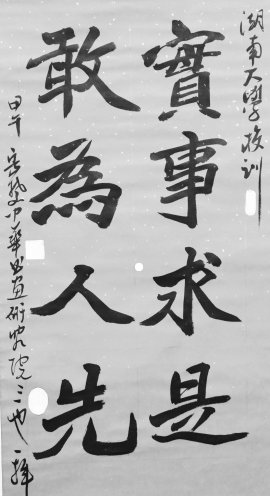 湖南大學校训
實事求是
敢為人先
甲午 岳麓中華書画研究院 三也 拜